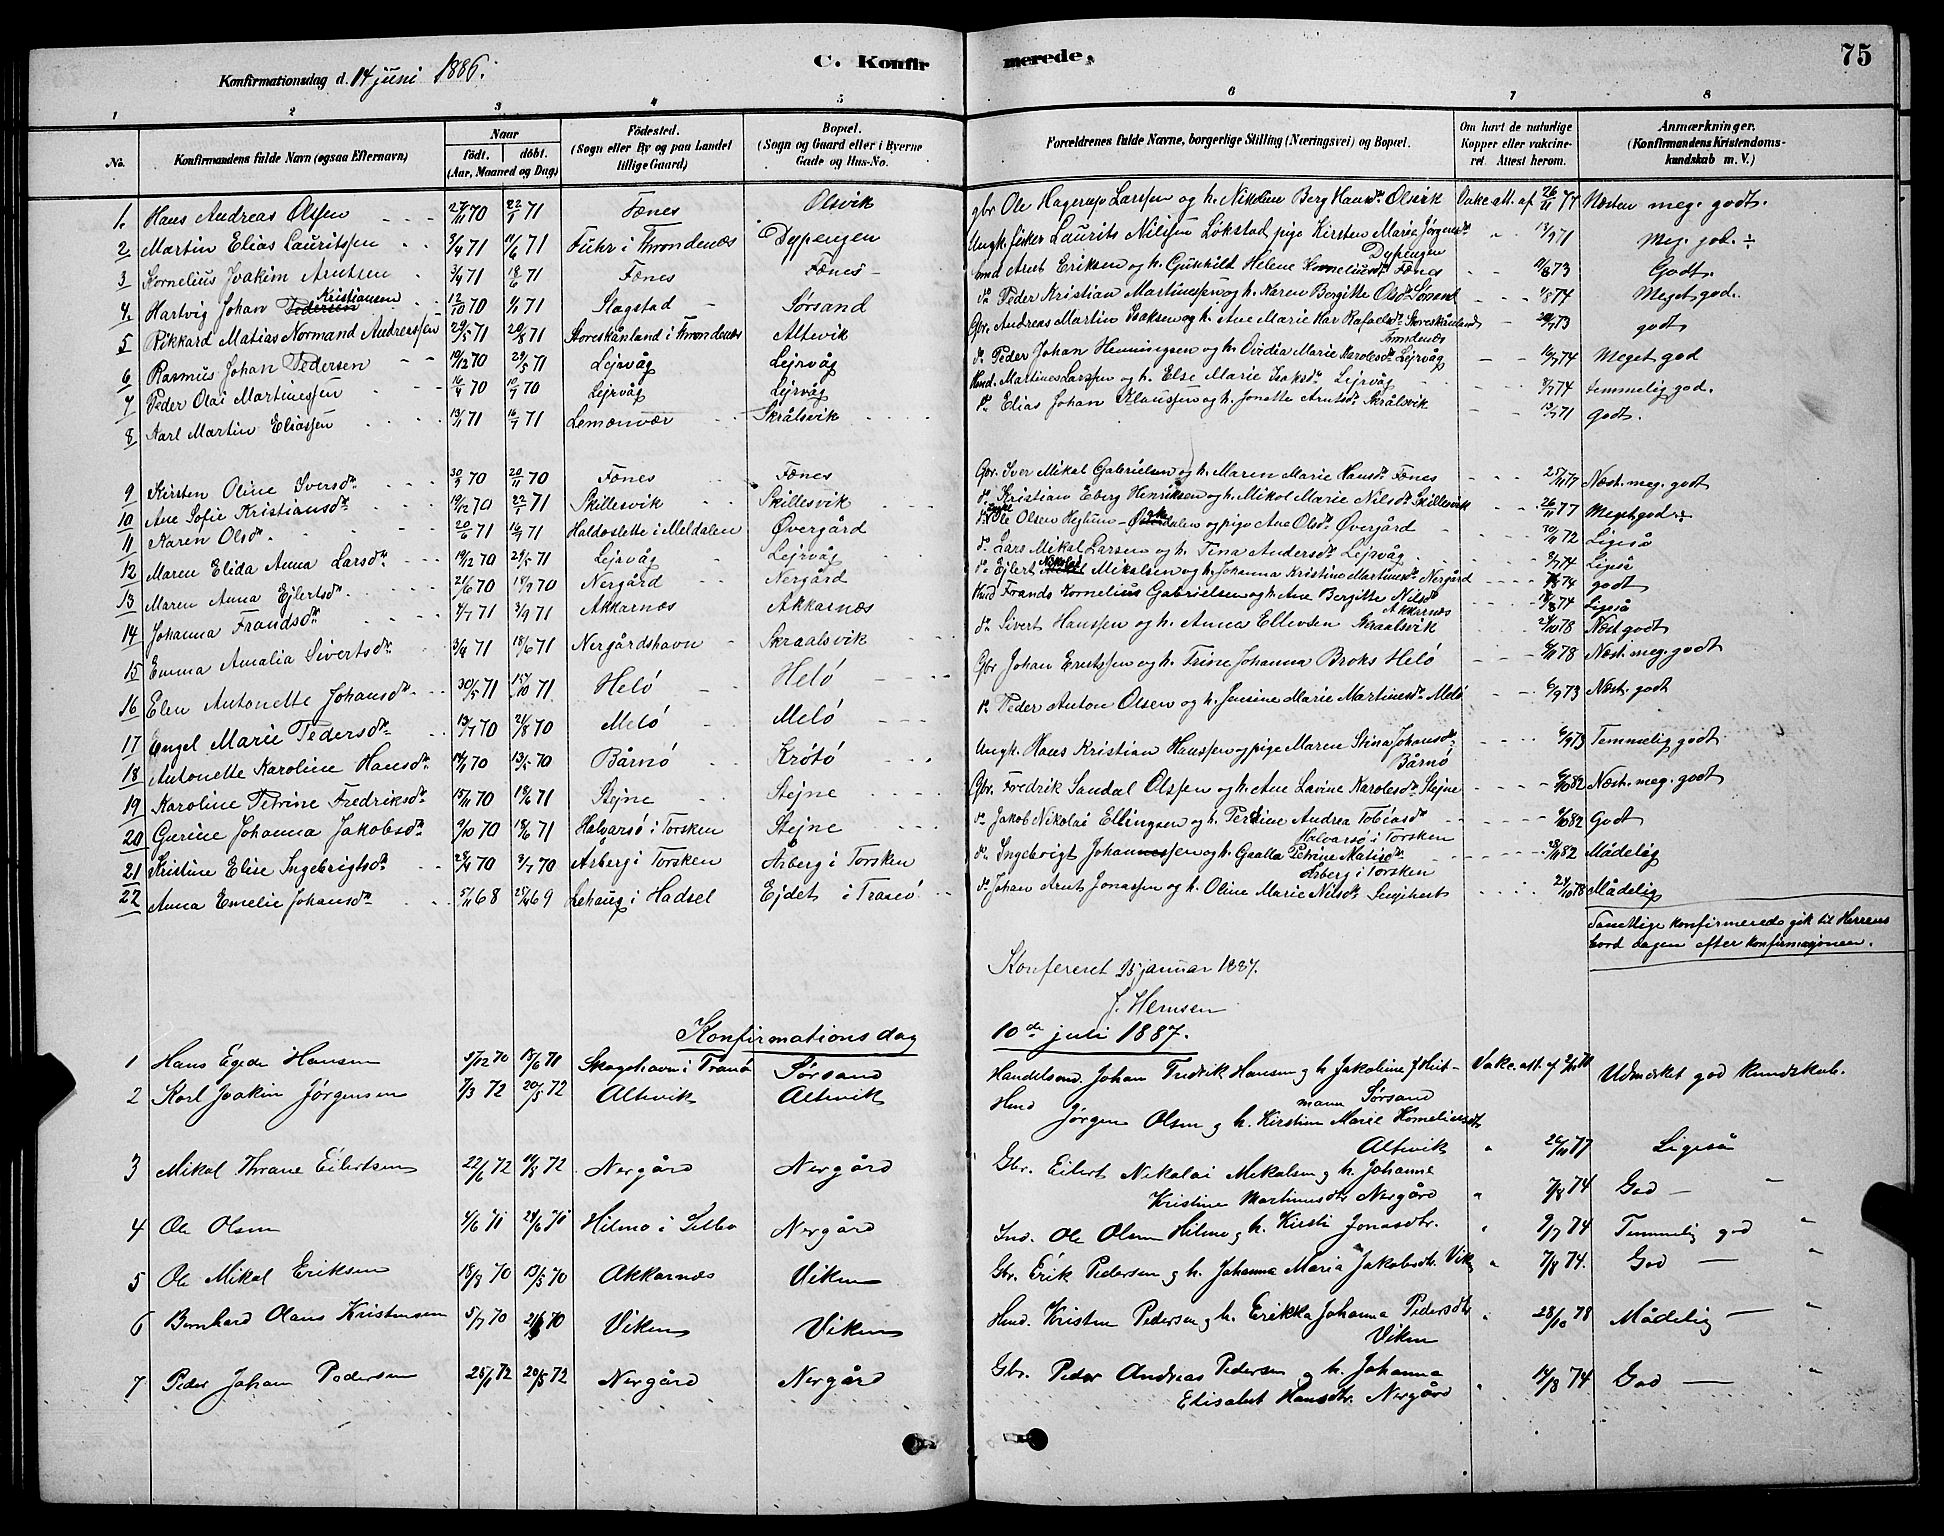 Konfirmationsdag d. 14 juni 1886.
C. Konfirmerede, 75
1 2 3 4 5 6 7 8
No. Konfirmandens fulde Navn (ogsaa Efternavn) Naar födt. döbt. (Aar, Maaned og Dag) Födested. (Sogn eller By og paa Landet tillige Gaard) Bopæl. (Sogn og Gaard eller i Byerne Gade og Hus-No. Forældrenes fulde Navne, borgerlige Stilling (Næringsvei) og Bopæl. Om havt de naturlige Kopper eller vakcineret. Attest herom. Anmærkninger. (Konfirmandens Kristendomskundskab m. V.)
1. Hans Andreas Olsen 27/11 70 22/1 71 Fænes Olsvik gbr. Ole Hagerup Larssen og h. Nikoline Berg Hansdr Olsvik Vakc. att. af 26/11 77 Næsten meg. godt.
2 Martin Elias Lauritssen 9/4 71 11/6 71 Fuhr i Trondenæs Dypengen Ungk. fisker Laurits Nilssen Løkstad pige Kirsten Marie Jørgensdr Dypengen 13/9 71 Meg. god. ÷
3 Kornelius Joakim Arntsen 3/4 71 18/6 71 Fænes Fænes hmd Arnt Eriksen og h. Gunhild Helene Korneliusdr Fænes 11/8 73 Godt.
4. Hartvig Johan Pedersen Kristiansen 12/10 70 1/1 71 Stagstad Sørsand dr Peder Kristian Martinussen og h. Karen Bergitte Olsdr Sørsand 1/8 74 Meget god.
5 Rikkard Matias Normand Andreassen 29/5 71 20/8 71 Storeskånland i Trondenæs Altevik Gbr. Andreas Martin Isaksen og h. Ane Marie Kar Rafaelsdr Storeskånland Trondenæs 73 godt
6 Rasmus Johan Pedersen 19/12 70 29/5 71 Lejrvåg Lejrvåg dr Peder Johan Henningsen og h. Ovidia Marie Karolesdr Lejrvåg 9/7 74 Meget god
7 Peder Olai Martinussen 16/4 70 10/7 70 Lejrvåg Lejrvåg Hmd. Martines Larssen og h. Else Marie Isaksdr Lejrvåg 9/7 74 temmelig god.
8 Karl Martin Eliassen 13/1 71 16/7 71 Lemænvær Skrålsvik dr Elias Johan Klaussen og h. Jonette Arntsdr Skrålsvik 13/7 71 godt.
9 Kirsten Oline Iversdr 30/9 70 20/11 70 Fænes Fænes Gbr. Iver Mikal Gabrielsen og h. Maren Marie Hansdr Fænes 25/11 77 Næst. meg. godt
10 Ane Sofie Kristiansdr 19/12 70 22/1 71 Skillesvik Skillesvik dr Kristian Eberg Henriksen og h. Mikol. Marie Nilsdr Skillesvik 26/11 77 Meget god ÷
11 Karen Olsdr 20/6 71 16/7 71 Haldoslette i Meldalen Øvergård Ole Olsen og pige Ane Olsdr Øvergård 72 Ligeså
12 Maren Elida Anna Larsdr 19/12 70 29/5 71 Lejrvåg Lejrvåg dr Lars Mikal Larsen og h. Tina Andersdr Lejrvåg 9/7 74 Ligeså
13 Maren Anna Ejlertsdr 21/6 70 18/9 70 Nergård Nergård dr Ejlert Nikolai Mikalsen og h. Johanna Kristine Martinusdr Nergård 74 godt
14 Johanna Frandsdr 4/7 71 3/9 71 Akkarnæs Akkarnæs Hmd Frands Kornelius Gabrielsen og h. Ane Bergitte Nilsdr Akkarnæs 14/8 74 Ligeså
15 Emma Amalia Sivertsdr 3/4 71 18/6 71 Nergårdshavn Skraalsvik dr Sivert Hanssen og h. Anna Ellevsen Skraalsvik 21/10 78 Næst godt
16 Elen Antonette Johansdr 30/5 71 15/10 71 Helø Helø Gbr Johan Erntssen og h. Trine Johanna Broks Helø 9/11 78 Næst. meg. godt
17 Engel Marie Pedersdr 13/7 70 21/8 70 Melø Melø dr Peder Anton Olsen og h. Jensine Marie Martinesdr Melø 6/9 73 Næst. godt
18 Antonette Karoline Hansdr 14/1 70 13/5 70 Bårnø Krøtø Ungk. Hans Kristian Hanssen og pige Maren Stina Johansdr Bårnø 6/9 73 Temmelig godt
19 Karoline Petrine Fredriksdr 15/11 70 18/6 71 Stejne Stejne Gbr. Fredrik Sandal Olssen og h. Ane Lavine Karolesdr Stejne 6/10 82 Næst. meg. godt
20 Gurine Johanna Jakobsdr 9/10 70 18/6 71 Halvarsø i Torsken Stejne dr Jakob Nikolai Ellingsen og h. Perdine Andrea Tobiasdr Halvarsø i Torsken 6/10 82 Godt
21 Kristine Elise Ingebrigtsdr 28/4 70 3/7 70 Årberg i Torsken Årberg i Torsken dr Ingebrigt Johannessen og h. Gaalla Petrine Matisdr Årberg i Torsken 18/11 82 Mådelig
22 Anna Emelie Johansdr 5/11 68 25/4 69 Lehaug i Hadsel Ejdet i Tranø dr Johan Arnt Jonassen og h. Oline Marie Nilsdr 24/10 78 Mådelig
Samtlige konfirmerede gik til Herrens bord dagen efter konfirmasjonen.
Konfereret 25 januar 1887.
J. Hemsen
Konfirmationsdag 10de juli 1887.
1 Hans Egede Hansen 5/12 70 18/6 71 Skogshavn i Tranø Sørsand Handelsmd. Johan Fredrik Hansen og h. Jakobine f. Heitmann Sørsand Vakc. att. af Udmerket god kundskab.
2 Karl Joakim Jørgensen 7/3 72 20/5 72 Altevik Altevik Hmd Jørgen Olsen og h. Kirstine Marie Korneliusdt Altevik " 26/11 77 Ligeså
3 Mikal Thrane Eilertsen 22/6 72 11/8 72 Nergård Nergård Gbr. Eilert Nikolai Mikalsen og h. Johanna Kristine Martinusdtr Nergård " 7/8 74 God — "
4 Ole Olsen 4/6 71 24/6 71 Hilmo i Selbo Nergård Ind. Ole Olsen Hilmo og h. Kirsti Jonasdtr. " 9/7 74 Temmelig god "
5 Ole Mikal Eriksen 18/3 70 13/5 70 Akkarnæs Viken Gbr. Erik Pedersen og h. Johanna Maria Jakobsdtr. Vik " 7/8 74. God — "
6 Bernhard Olaus Kristensen 5/7 70 21/8 70 Viken Viken Hmd. Kristen Pedersen og h. Erikka Johanna Pedersdtr Viken " 28/10 78 Mådelig — "
7 Peder Johan Pedersen 25/1 72 20/5 72 Nergård Nergård Gbr. Peder Andreas Pedersen og h. Johanna Elisabet Hansdtr. Nergård " 14/8 74 God — "